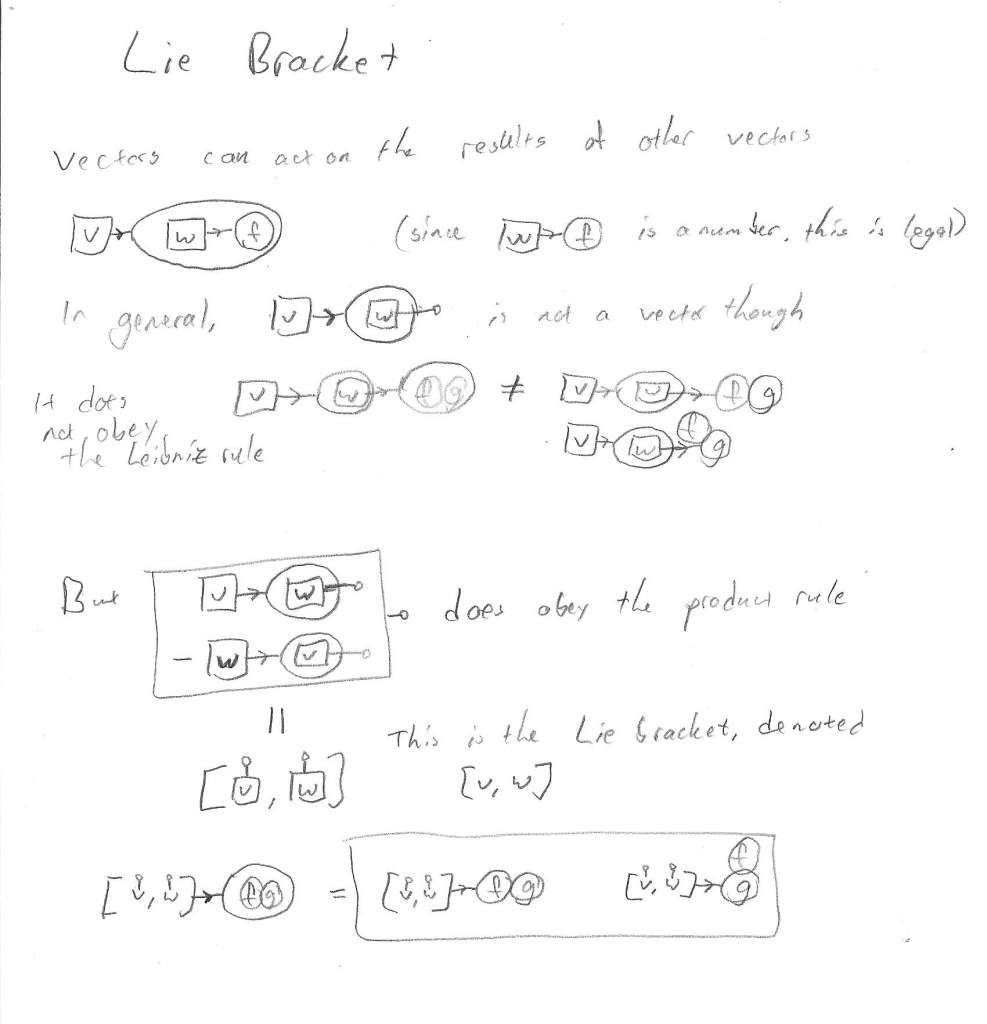 Lie Bracket
Vectors can act on the results of other vectors
v w f (since w f is a number, this is legal)
In general, v w is not a vector though
It does v w f g ≠ v w f g
not obey v w f g
the Leibniz rule
But v w does obey the product rule
- w v
=
This is the Lie bracket, denoted
[v, w] [v, w]
[v, w] f g = [v, w] f g [v, w] f g